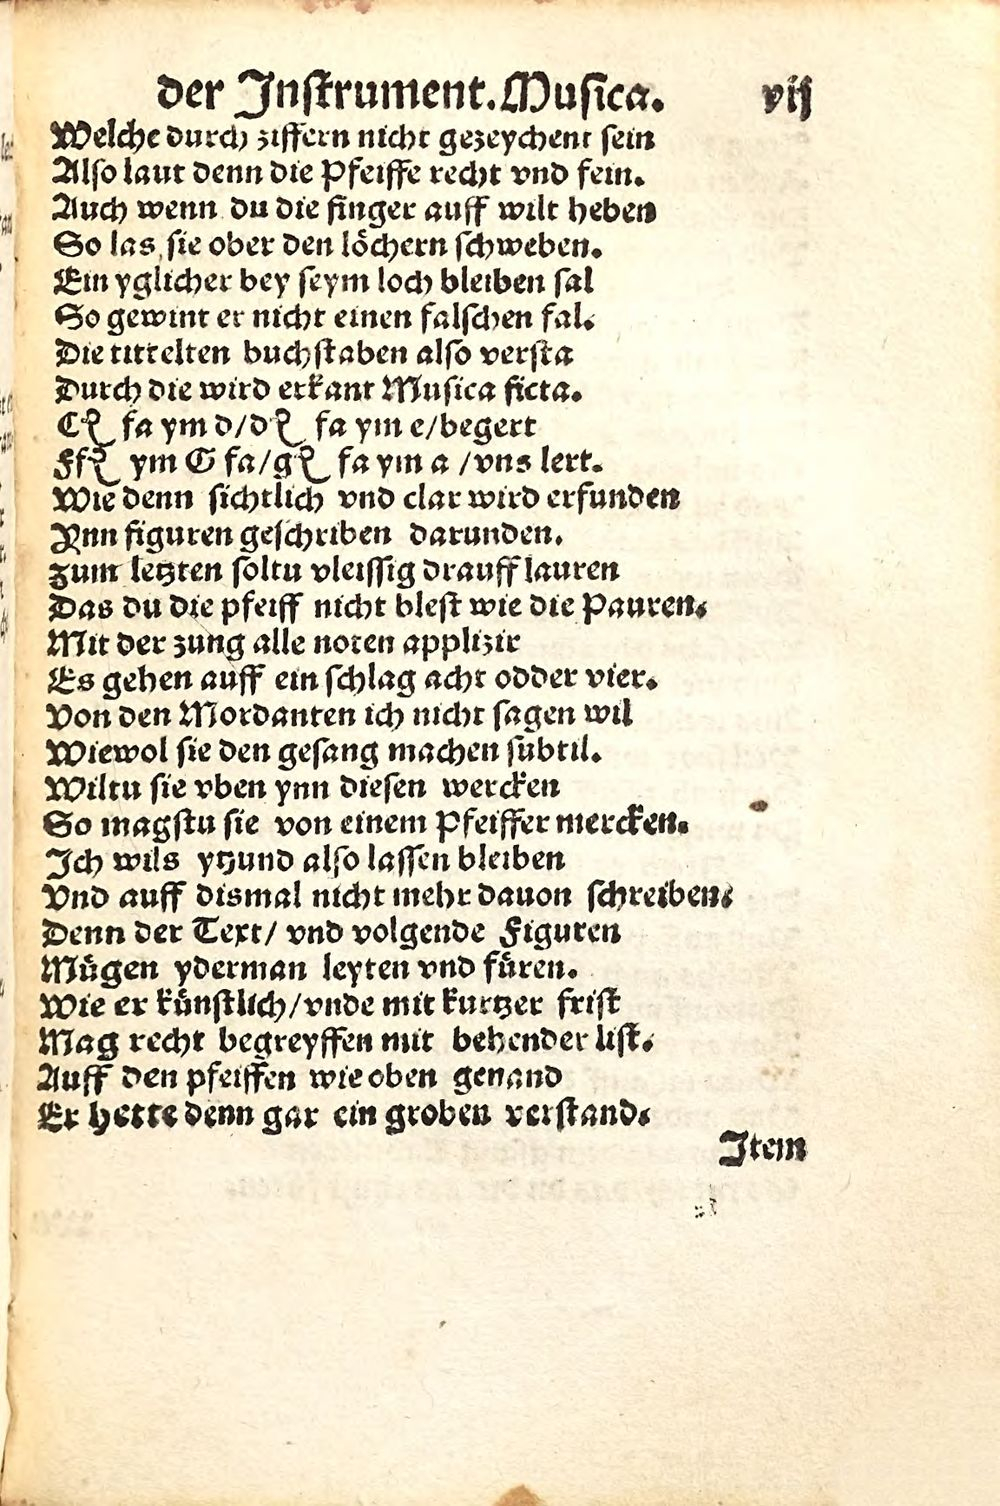 der Inſtrument. Muſica. vij
Welche durch ziffern nicht gezeychent ſein
Alſo laut denn die Pfeiffe recht vnd fein.
Auch wenn du die finger auff wilt heben
So las ſie ober den löchern ſchweben.
Ein yglicher bey ſeym loch bleiben ſal
So gewint er nicht einen falſchen fal.
Die tittelten buchſtaben alſo verſta
Durch die wird erkant Muſica ficta.
Cꝭ fa ym d/dꝭ fa ym e/begert
Ffꝭ ym G fa/gꝭ fa ym a /vns lert.
Wie denn ſichtlich vnd clar wird erfunden
Ynn figuren geſchriben darunden.
zum letzten ſoltu vleiſſig drauff lauren
Das du die pfeiff nicht bleſt wie die Pauren.
Mit der zung alle noten applizir
Es gehen auff ein ſchlag acht odder vier.
Von den Mordanten ich nicht ſagen wil
Wiewol ſie den geſang machen ſubtil.
Wiltu ſie vben ynn dieſen wercken
So magſtu ſie von einem Pfeiffer mercken.
Ich wils ytzund alſo laſſen bleiben
Vnd auff dismal nicht mehr dauon ſchreiben.
Denn der Text/ vnd volgende Figuren
Mügen yderman leyten vnd füren.
Wie er künſtlich/vnde mit kurtzer friſt
Mag recht begreyffen mit behender liſt.
Auff den pfeiffen wie oben genand
Er hette denn gar ein groben verſtand.
Item